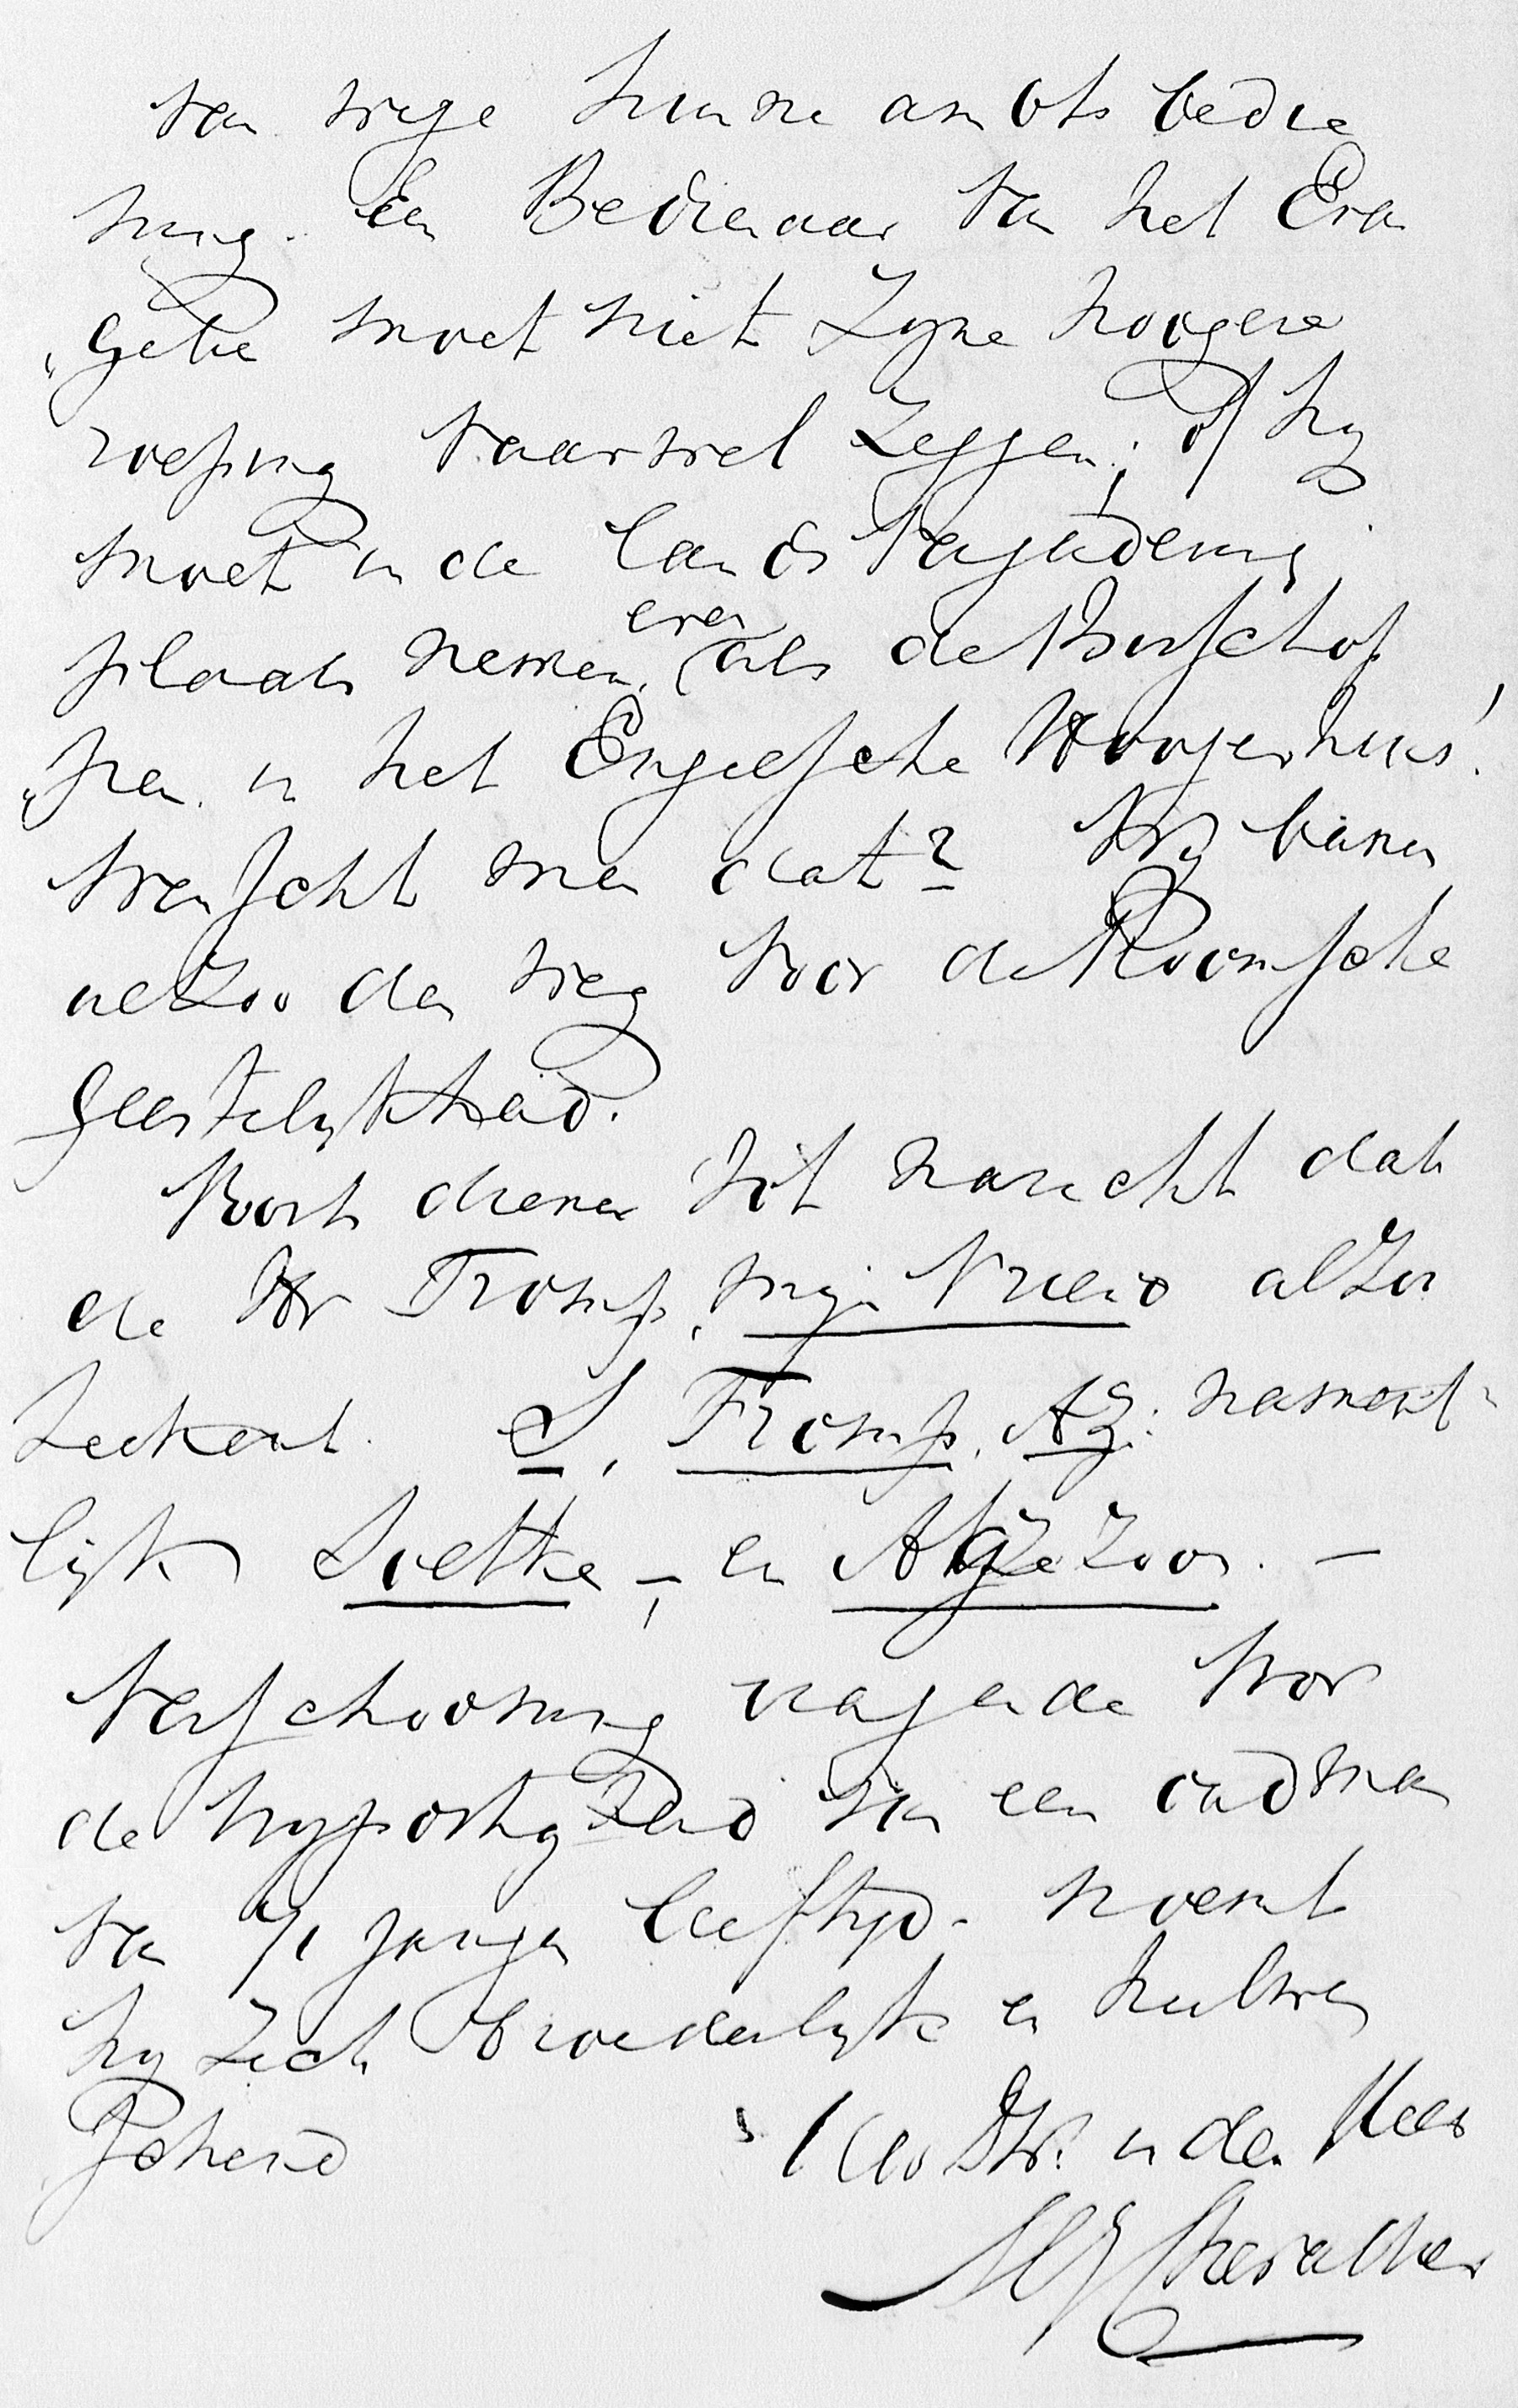 van wege hunne ambtsbedie
ning. Een Bedienaar van het Evan
gelie moet niet zyne hoogere
roeping vaarwel zeggen; of hy
moet in de landsvergadering
plaats nemen, even als de Bisschop
pen in het Engelsche Hoogerhuis!
Wenscht men dat? Wy banen
alzoo den weg voor de Roomsche
geestelykheid.
Voorts diene tot naricht dat
de Hr Tromp, myn Vriend alzoo
teekent. S. Tromp, Az: nament-
lijk Soelke, en Aggezoon. —
Verschooning vragende voor
de vrypostigheid van een oud man
van 71 jarigen leeftyd. noemt
hy zich broederlyk en heilwen
schend
Uw Dw. in den Heer